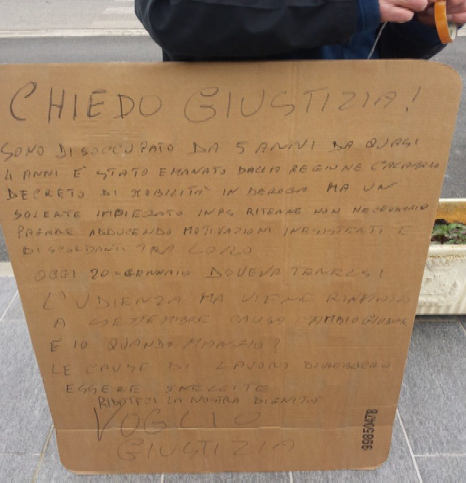 CHIEDO GIUSTIZIA!
SONO DISOCCUPATO DA 5 ANNI DA QUASI
4 ANNI E' STATO EMANATO DALLA REGIONE CALABRIA
DECRETO DI MOBILITA' IN DEROGA MA UN
SOLERTE IMPIEGATO INPS RITENNE NON NECESSARIO
PAGARE ADDUCENDO MOTIVAZIONI INESISTENTI E
DISCORDANTI TRA LORO
OGGI 20 GENNAIO DOVEVA TENERSI
L'UDIENZA MA VIENE RINVIATA
A SETTEMBRE CAUSA CAMBIO GIUDICE
E IO QUANDO MANGIO?
LE CAUSE DI LAVORO DOVREBBERO
ESSERE SNELLITE
RIDATECI LA NOSTRA DIGNITA'
VOGLIO
GIUSTIZIA
99850478